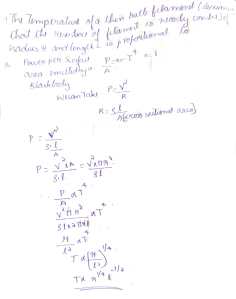 The Temperature of a thin bulb filament (assume
that the resistance of filament is nearly constant) of
radius r and length l is proportional to
Power per surface
area emitted by a
Blackbody
P/A = σT⁴
We can take P = V²/R
R = ρ.l/A (cross sectional area)
P = V²/
P = V²×A/ρ.l = V²×πr²/ρl
P/A α T⁴
α T⁴
r/l² α T⁴
T α (r/l²)^1/4
T α r^1/4 l^-1/2